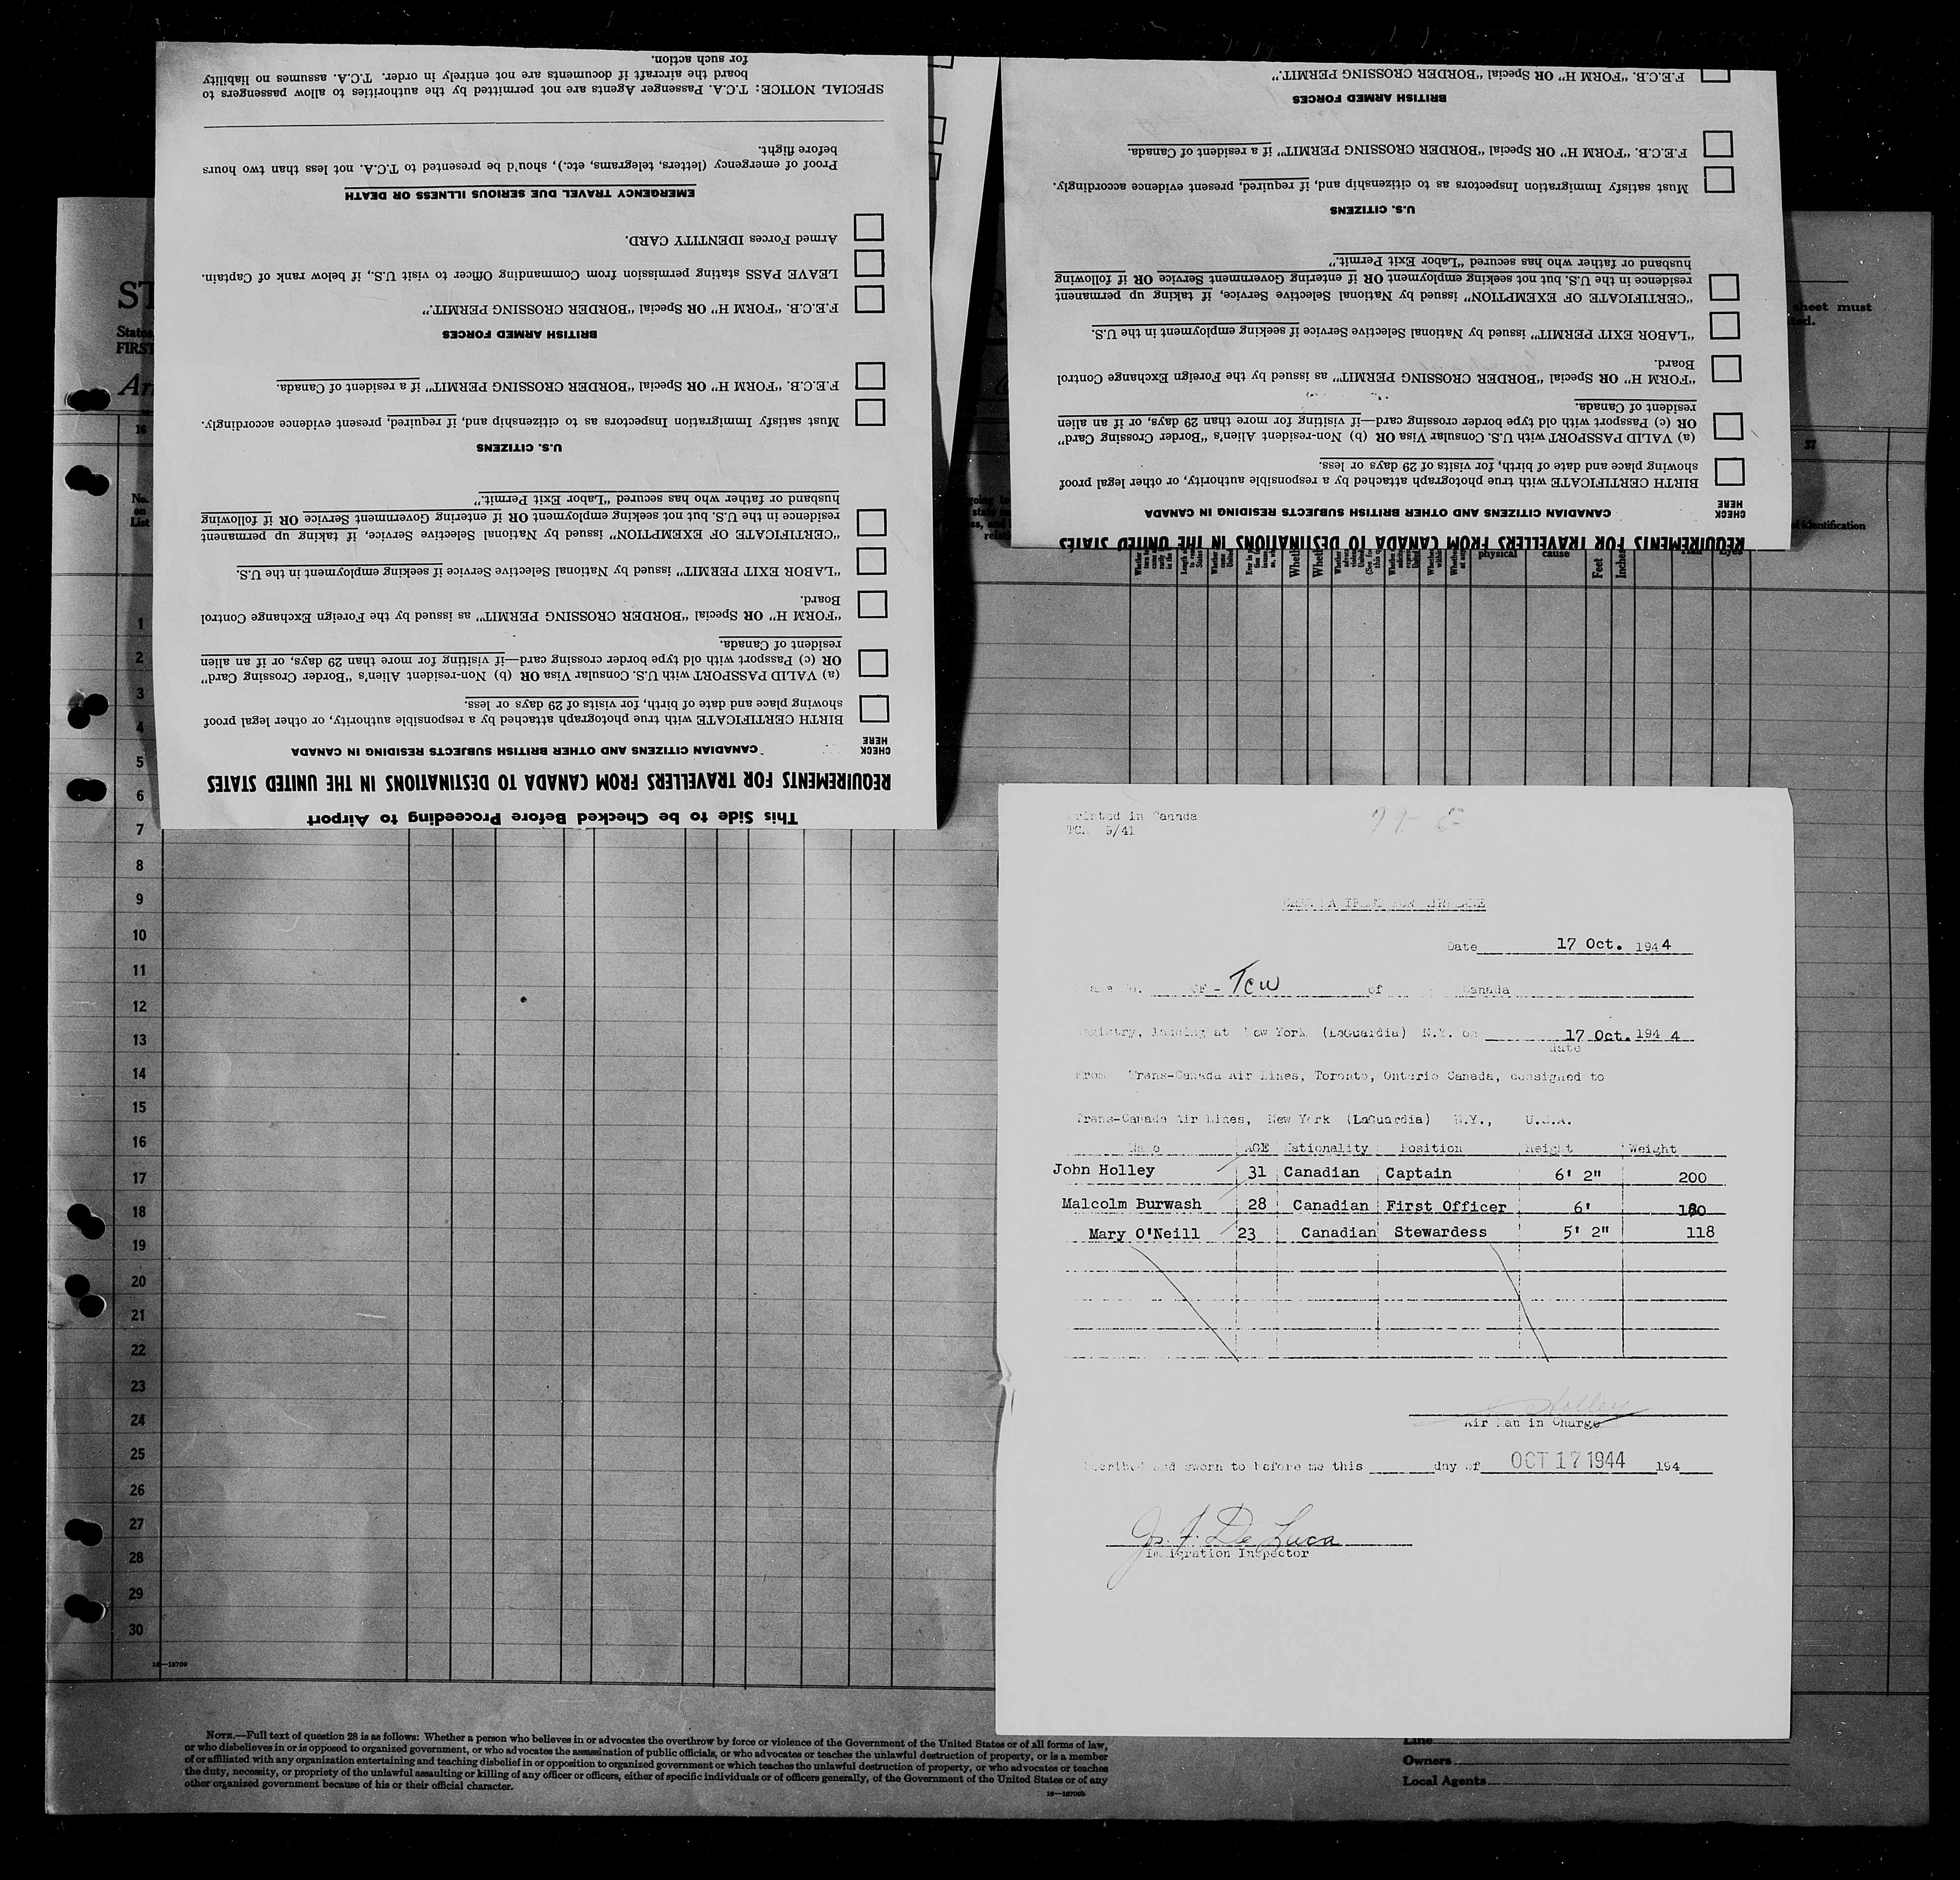 This Side to be Checked Before Proceeding to Airport
REQUIREMENTS FOR TRAVELLERS FROM CANADA TO DESTINATIONS IN THE UNITED STATES
CHECK
HERE
CANADIAN CITIZENS AND OTHER BRITISH SUBJECTS RESIDING IN CANADA
BIRTH CERTIFICATE with true photograph attached by a responsible authority, or other legal proof
showing place and date of birth, for visits of 29 days or less.
(a) VALID PASSPORT with U.S. Consular Visa OR (b) Non-resident Alien's "Border Crossing Card"
OR (c) Passport with old type border crossing card—if visiting for more than 29 days, or if an alien
resident of Canada.
"FORM H" OR Special "BORDER CROSSING PERMIT" as issued by the Foreign Exchange Control
Board.
"LABOR EXIT PERMIT" issued by National Selective Service if seeking employment in the U.S.
"CERTIFICATE OF EXEMPTION" issued by National Selective Service, if taking up permanent
residence in the U.S. but not seeking employment OR if entering Government Service OR if following
husband or father who has secured "Labor Exit Permit."
U.S. CITIZENS
Must satisfy Immigration Inspectors as to citizenship and, if required, present evidence accordingly.
F.E.C.B. "FORM H" OR Special "BORDER CROSSING PERMIT" if a resident of Canada.
BRITISH ARMED FORCES
F.E.C.B. "FORM H" OR Special "BORDER CROSSING PERMIT."
LEAVE PASS stating permission from Commanding Officer to visit U.S., if below rank of Captain.
Armed Forces IDENTITY CARD.
EMERGENCY TRAVEL DUE SERIOUS ILLNESS OR DEATH
Proof of emergency (letters, telegrams, etc.), shou'd be presented to T.C.A. not less than two hours
before flight.
SPECIAL NOTICE: T.C.A. Passenger Agents are not permitted by the authorities to allow passengers to
board the aircraft if documents are not entirely in order. T.C.A. assumes no liability
for such action.
REQUIREMENTS FOR TRAVELLERS FROM CANADA TO DESTINATIONS IN THE UNITED STATES
CHECK
HERE
CANADIAN CITIZENS AND OTHER BRITISH SUBJECTS RESIDING IN CANADA
BIRTH CERTIFICATE with true photograph attached by a responsible authority, or other legal proof
showing place and date of birth, for visits of 29 days or less.
(a) VALID PASSPORT with U.S. Consular Visa OR (b) Non-resident Alien's "Border Crossing Card"
OR (c) Passport with old type border crossing card—if visiting for more than 29 days, or if an alien
resident of Canada.
"FORM H" OR Special "BORDER CROSSING PERMIT" as issued by the Foreign Exchange Control
Board.
"LABOR EXIT PERMIT" issued by National Selective Service if seeking employment in the U.S.
"CERTIFICATE OF EXEMPTION" issued by National Selective Service, if taking up permanent
residence in the U.S. but not seeking employment OR if entering Government Service OR if following
husband or father who has secured "Labor Exit Permit."
U.S. CITIZENS
Must satisfy Immigration Inspectors as to citizenship and, if required, present evidence accordingly.
F.E.C.B. "FORM H" OR Special "BORDER CROSSING PERMIT" if a resident of Canada.
BRITISH ARMED FORCES
F.E.C.B. "FORM H" OR Special "BORDER CROSSING PERMIT."
sheet must
FIRST
16
37
No.
on
List
of identification
physical cause Feet Inches
1
2
3
4
5
6
7
8
9
10
11
12
13
14
15
16
17
18
19
20
21
22
23
24
25
26
27
28
29
30
16—18709
Printed in Canada
TCA 9/41
Date 17 Oct. 1944
CF - TCW of Canada
Registry, landing at New York (LaGuardia) N.Y. on 17 Oct. 1944
date
From Trans-Canada Air Lines, Toronto, Ontario Canada, consigned to
Trans-Canada Air Lines, New York (LaGuardia) N.Y., U.S.A.
Name AGE Nationality Position Height Weight
John Holley 31 Canadian Captain 6' 2" 200
Malcolm Burwash 28 Canadian First Officer 6'
Mary O'Neill 23 Canadian Stewardess 5' 2" 118
Holley
Air Man in Charge
and sworn to before me this day of OCT 17 1944 194
Jos. F. De Luca
Immigration Inspector
NOTE.—Full text of question 28 is as follows: Whether a person who believes in or advocates the overthrow by force or violence of the Government of the United States or of all forms of law,
or who disbelieves in or is opposed to organized government, or who advocates the assassination of public officials, or who advocates or teaches the unlawful destruction of property, or is a member
of or affiliated with any organization entertaining and teaching disbelief in or opposition to organized government or which teaches the unlawful destruction of property, or who advocates or teaches
the duty, necessity, or propriety of the unlawful assaulting or killing of any officer or officers, either of specific individuals or of officers generally, of the Government of the United States or of any
other organized government because of his or their official character.
16—18709b
Line
Owners
Local Agents